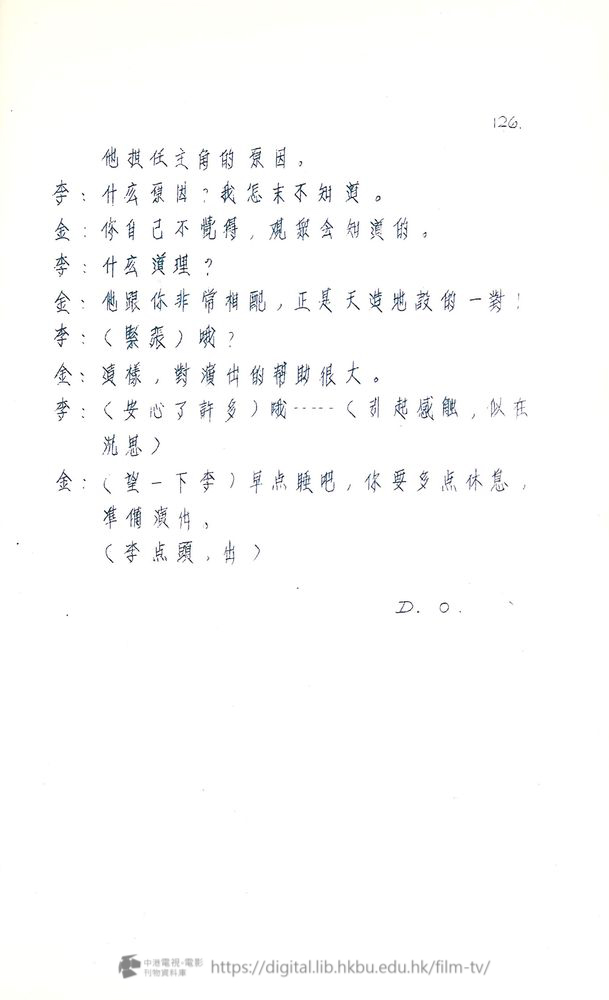 126.
他担任主角的原因。
李：什么原因？我怎末不知道。
金：你自己不覺得，观眾会知道的。
李：什么道理？
金：他跟你非常相配，正是天造地設的一對！
李：（緊張）哦？
金：這樣，對演出的帮助很大。
李：（安心了許多）哦……（引起感触，似在
沉思）
金：（望一下李）早点睡吧，你要多点休息，
準備演出。
（李点頭，出）
D. O.
中港電視・電影
刊物資料庫
https://digital.lib.hkbu.edu.hk/film-tv/